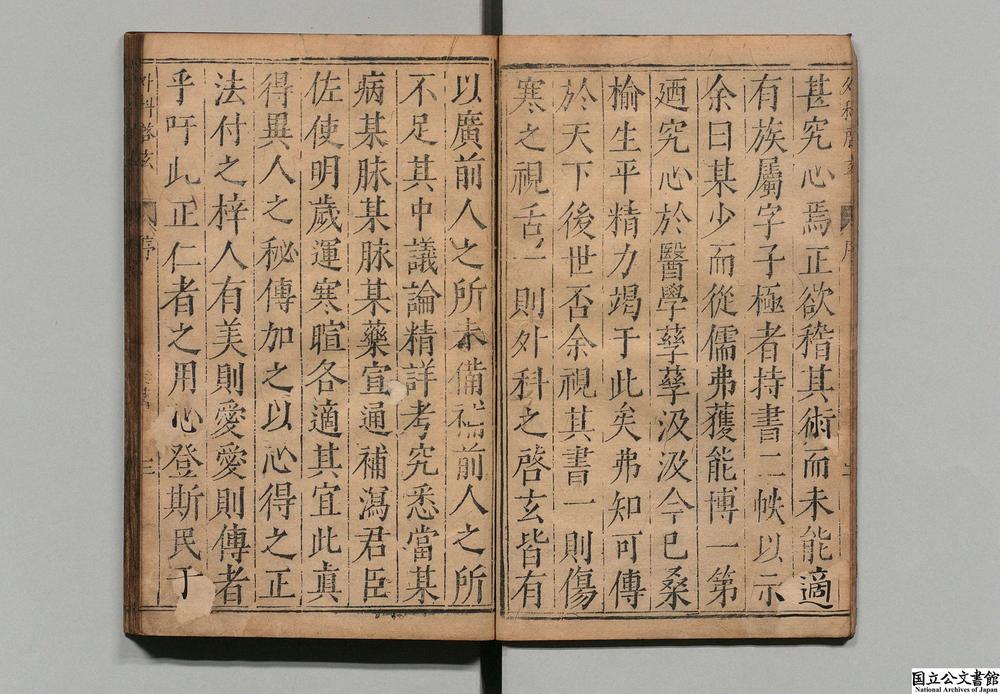 甚究心焉正欲稽其術而未能適
有族屬字子極者持書二帙以示
余曰某少而從儒弗獲能博一第
廼究心於醫學孳孳汲汲今已桑
榆生平精力竭于此矣弗知可傳
於天下後世否余視其書一則傷
寒之視舌一則外科之啓玄皆有
以廣前人之所未備補前人之所
不足其中議論精詳考究悉當某
病某脉某脉某藥宣通補瀉君臣
佐使明歲運寒暄各適其宜此眞
得異人之秘傳加之以心得之正
法付之梓人有美則愛愛則傳者
乎吁此正仁者之用心登斯民于
外科啓玄 序 三
国立公文書館
National Archives of Japan